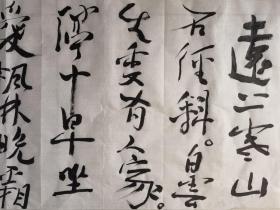 遠上寒山
石徑斜。白雲
生處有人家。
停車坐
愛楓林晚霜